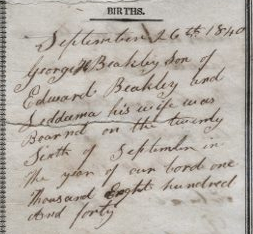 BIRTHS.
September 26th 1840
George W Beakley son of
Edward Beakley and
Leddama his wife was
Bearnd on the twenty
Sexth of September in
the year of our lord one
Thousand Eight hundred
And forty